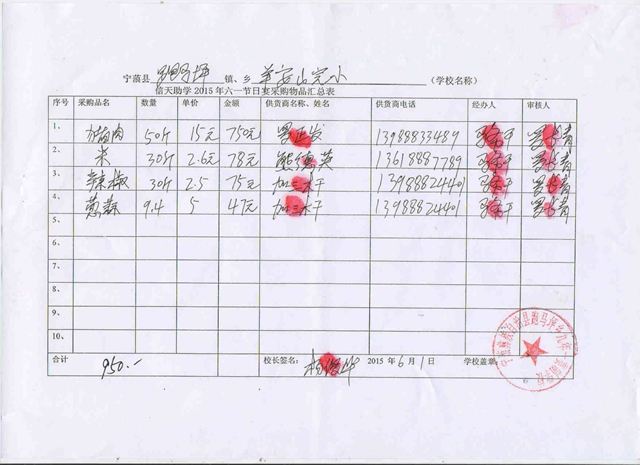 宁蒗县 跑马坪 镇、乡 羊安山完小 (学校名称)
信天助学 2015 年六一节日宴采购物品汇总表
序号 采购品名 数量 单价 金额 供货商名称、姓名 供货商电话 经办人 审核人
1、 猪肉 50斤 15元 750元 13988833489
2、 米 30斤 2.6元 78元 熊德英 13618887789
3、 辣椒 30斤 2.5 75元 加三木干 13988824401
4、 葱蒜 9.4 5 47元 加三木干 13988824401
5、
6、
7、
8、
9、
10、
合计 950.- 校长签名: 2015 年 6 月 1 日 学校盖章: